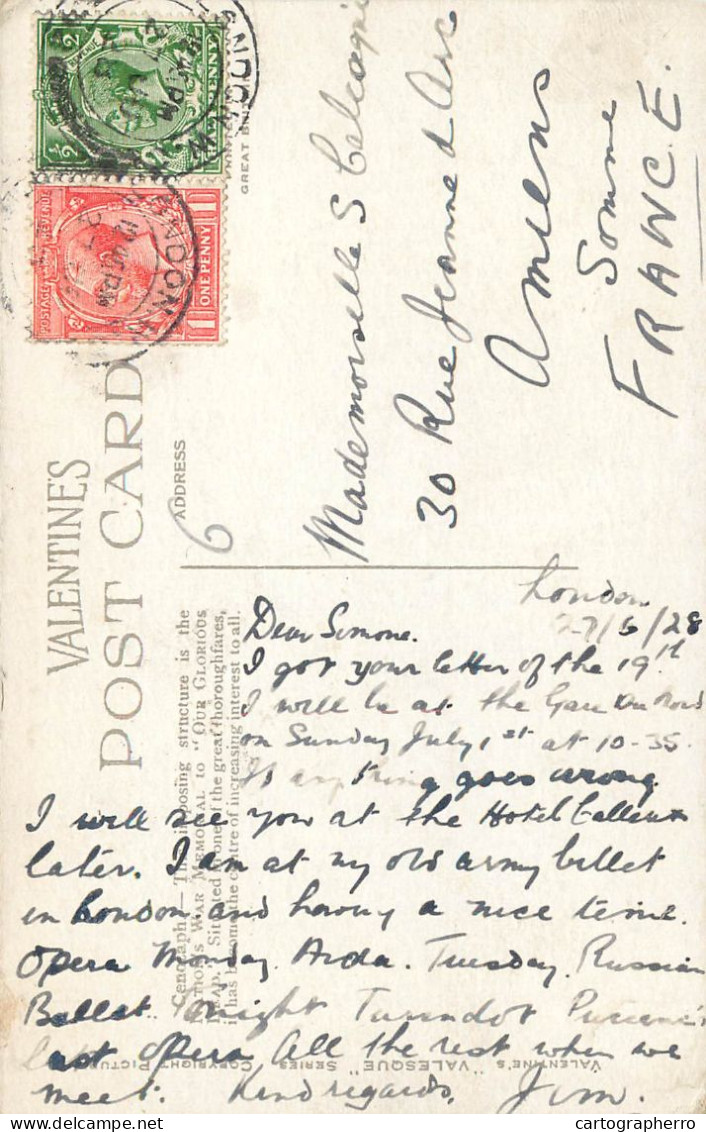 VALENTINE'S
POST CARD
ADDRESS
GREAT BRITAIN
POSTAGE REVENUE
ONE PENNY
6
Mademoiselle S
30 Rue Jeanne d Arc
Amiens
Somme
FRANCE.
Cenotaph.— This imposing structure is the
Nation's War Memorial to "Our Glorious
Dead." Situated in one of the great thoroughfares,
it has become the centre of increasing interest to all.
VALENTINE'S "VALESQUE" SERIES
COPYRIGHT PICTURE
London
27/6/28
Dear Simone.
I got your letter of the 19th
I will be at the Gare Du Nord
on Sunday July 1st at 10-35.
If anything goes wrong
I will see you at the Hotel
later. I am at my old army billet
in London and having a nice time.
Opera Monday. Aida. Tuesday. Russian
Ballet. Tonight Turandot Puccini's
last opera All the rest when we
meet. Kind regards, Jim.
cartographerro